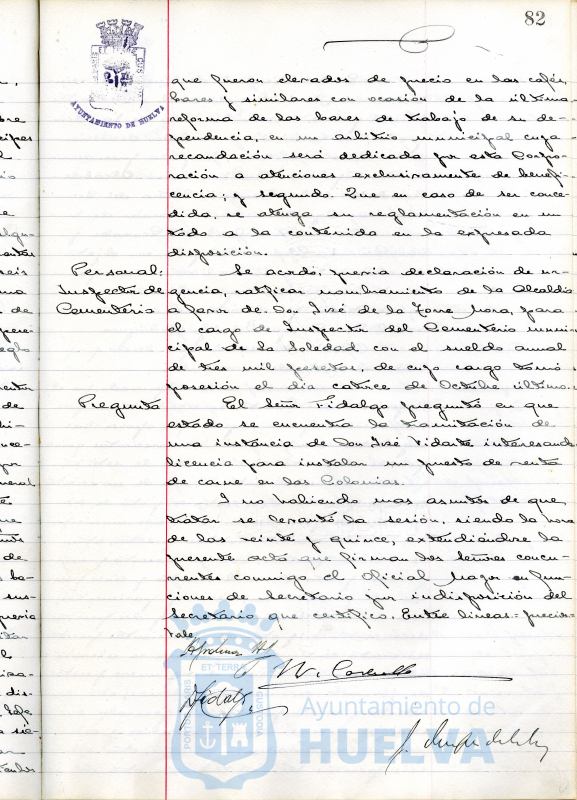 82
AYUNTAMIENTO DE HUELVA
que fueron elevados de precio en los cafés,
bares y similares con ocasión de la última
reforma de las bases de trabajo de su de-
pendencia, en un arbitrio municipal cuya
recaudación será dedicada por esta Corpo-
ración a atenciones exclusivamente de benefi-
cencia; y segundo. Que en caso de ser conce-
dida, se atenga su reglamentación en un
todo a la contenida en la expresada
disposición.
Personal:
Inspector de
Cementerio
Se acordó, previa declaración de ur-
gencia, ratificar nombramiento de la Alcaldía
a favor de Don José de la Torre Mora, para
el cargo de Inspector del Cementerio muni-
cipal de la Soledad con el sueldo anual
de tres mil pesetas, de cuyo cargo tomó
posesión el día catorce de Octubre último.
Pregunta
El Señor Fidalgo preguntó en que
estado se encuentra la tramitación de
una instancia de Don José Vidante interesando
licencia para instalar un puesto de venta
de carne en las Colonias.
Y no habiendo mas asuntos de que
tratar se levantó la sesión, siendo la hora
de las veinte y quince, extendiéndose la
presente acta que firman los señores concu-
rrentes conmigo el Oficial Mayor en fun-
ciones de Secretario por indisposición del
Secretario que certifico. Entre lineas =
vale
PORTUS MARIS
ET TERRAE
CUSTODIA
Ayuntamiento de
HUELVA